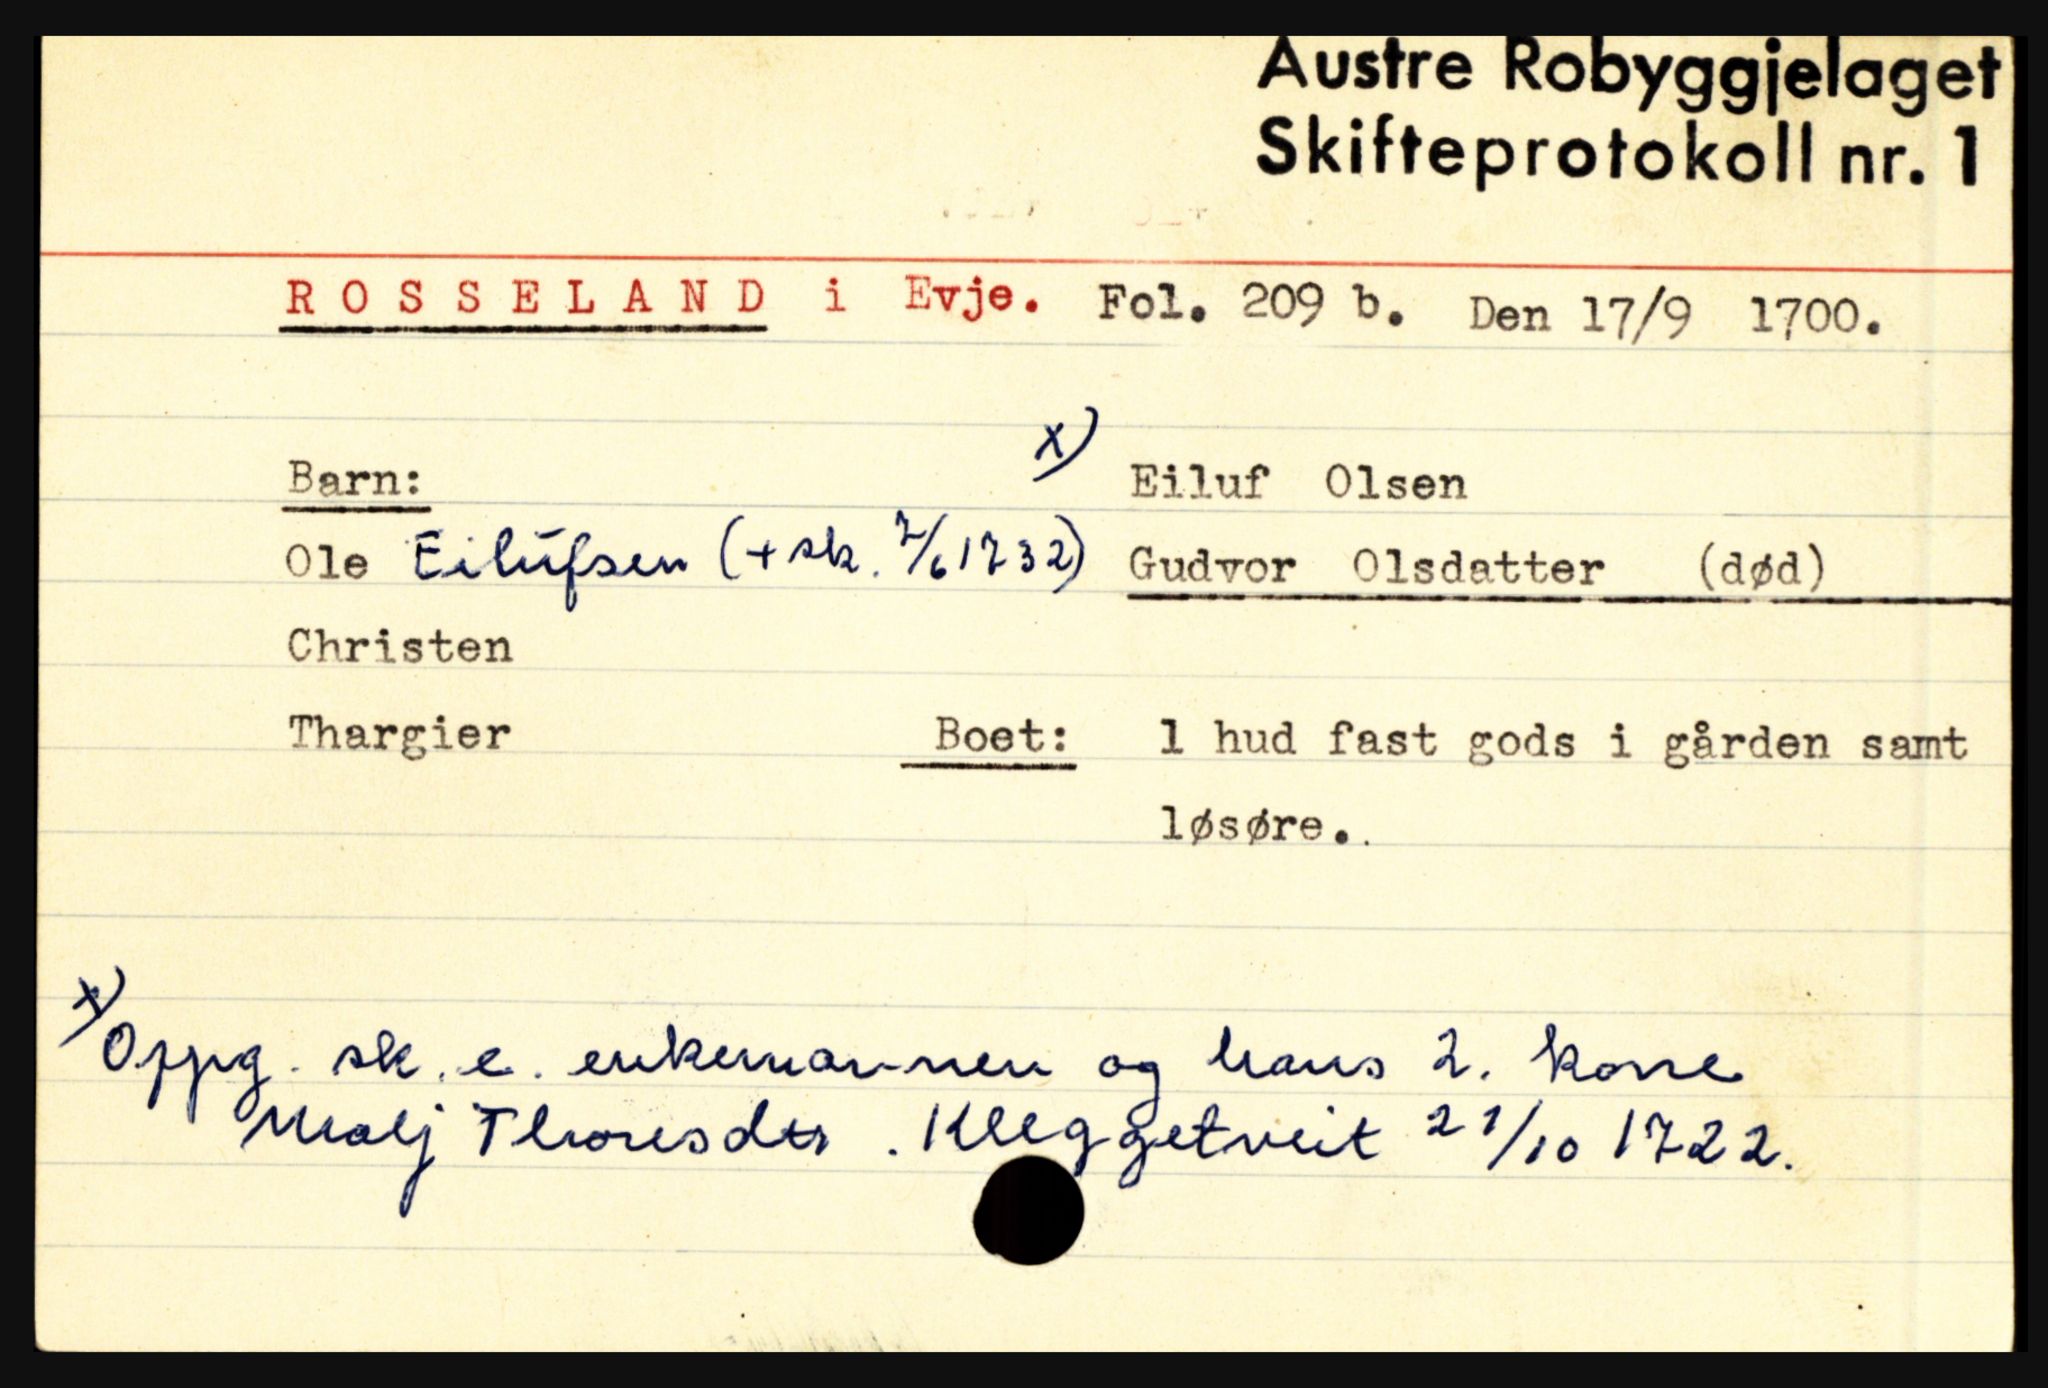 Austre Robyggjelaget
Skifteprotokoll nr. 1
ROSSELAND i Evje. Fol. 209 b. Den 17/9 1700.
Barn: x) Eiluf Olsen
Ole Eilufsen (+ sk. 7/6 1732) Gudvor Olsdatter (død)
Christen
Thargier Boet: 1 hud fast gods i gården samt
løsøre.
x) Oppg. sk. e. enkemannen og hans 2. kone
Malj Thoresdtr. Kleggetveit 21/10 1722.